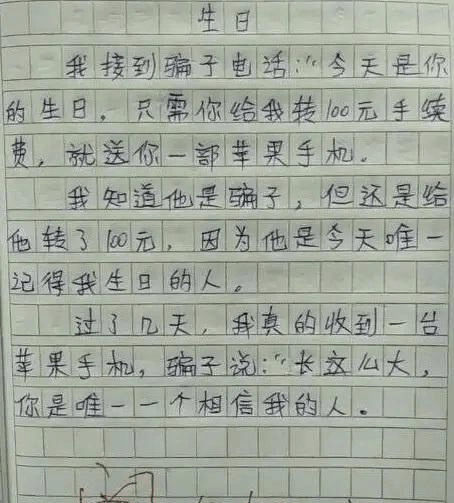 生日
我接到骗子电话:“今天是你
的生日。只需你给我转100元手续
费，就送你一部苹果手机。
我知道他是骗子，但还是给
他转了100元，因为他是今天唯一
记得我生日的人。
过了几天，我真的收到一台
苹果手机，骗子说:“长这么大，
你是唯一一个相信我的人。